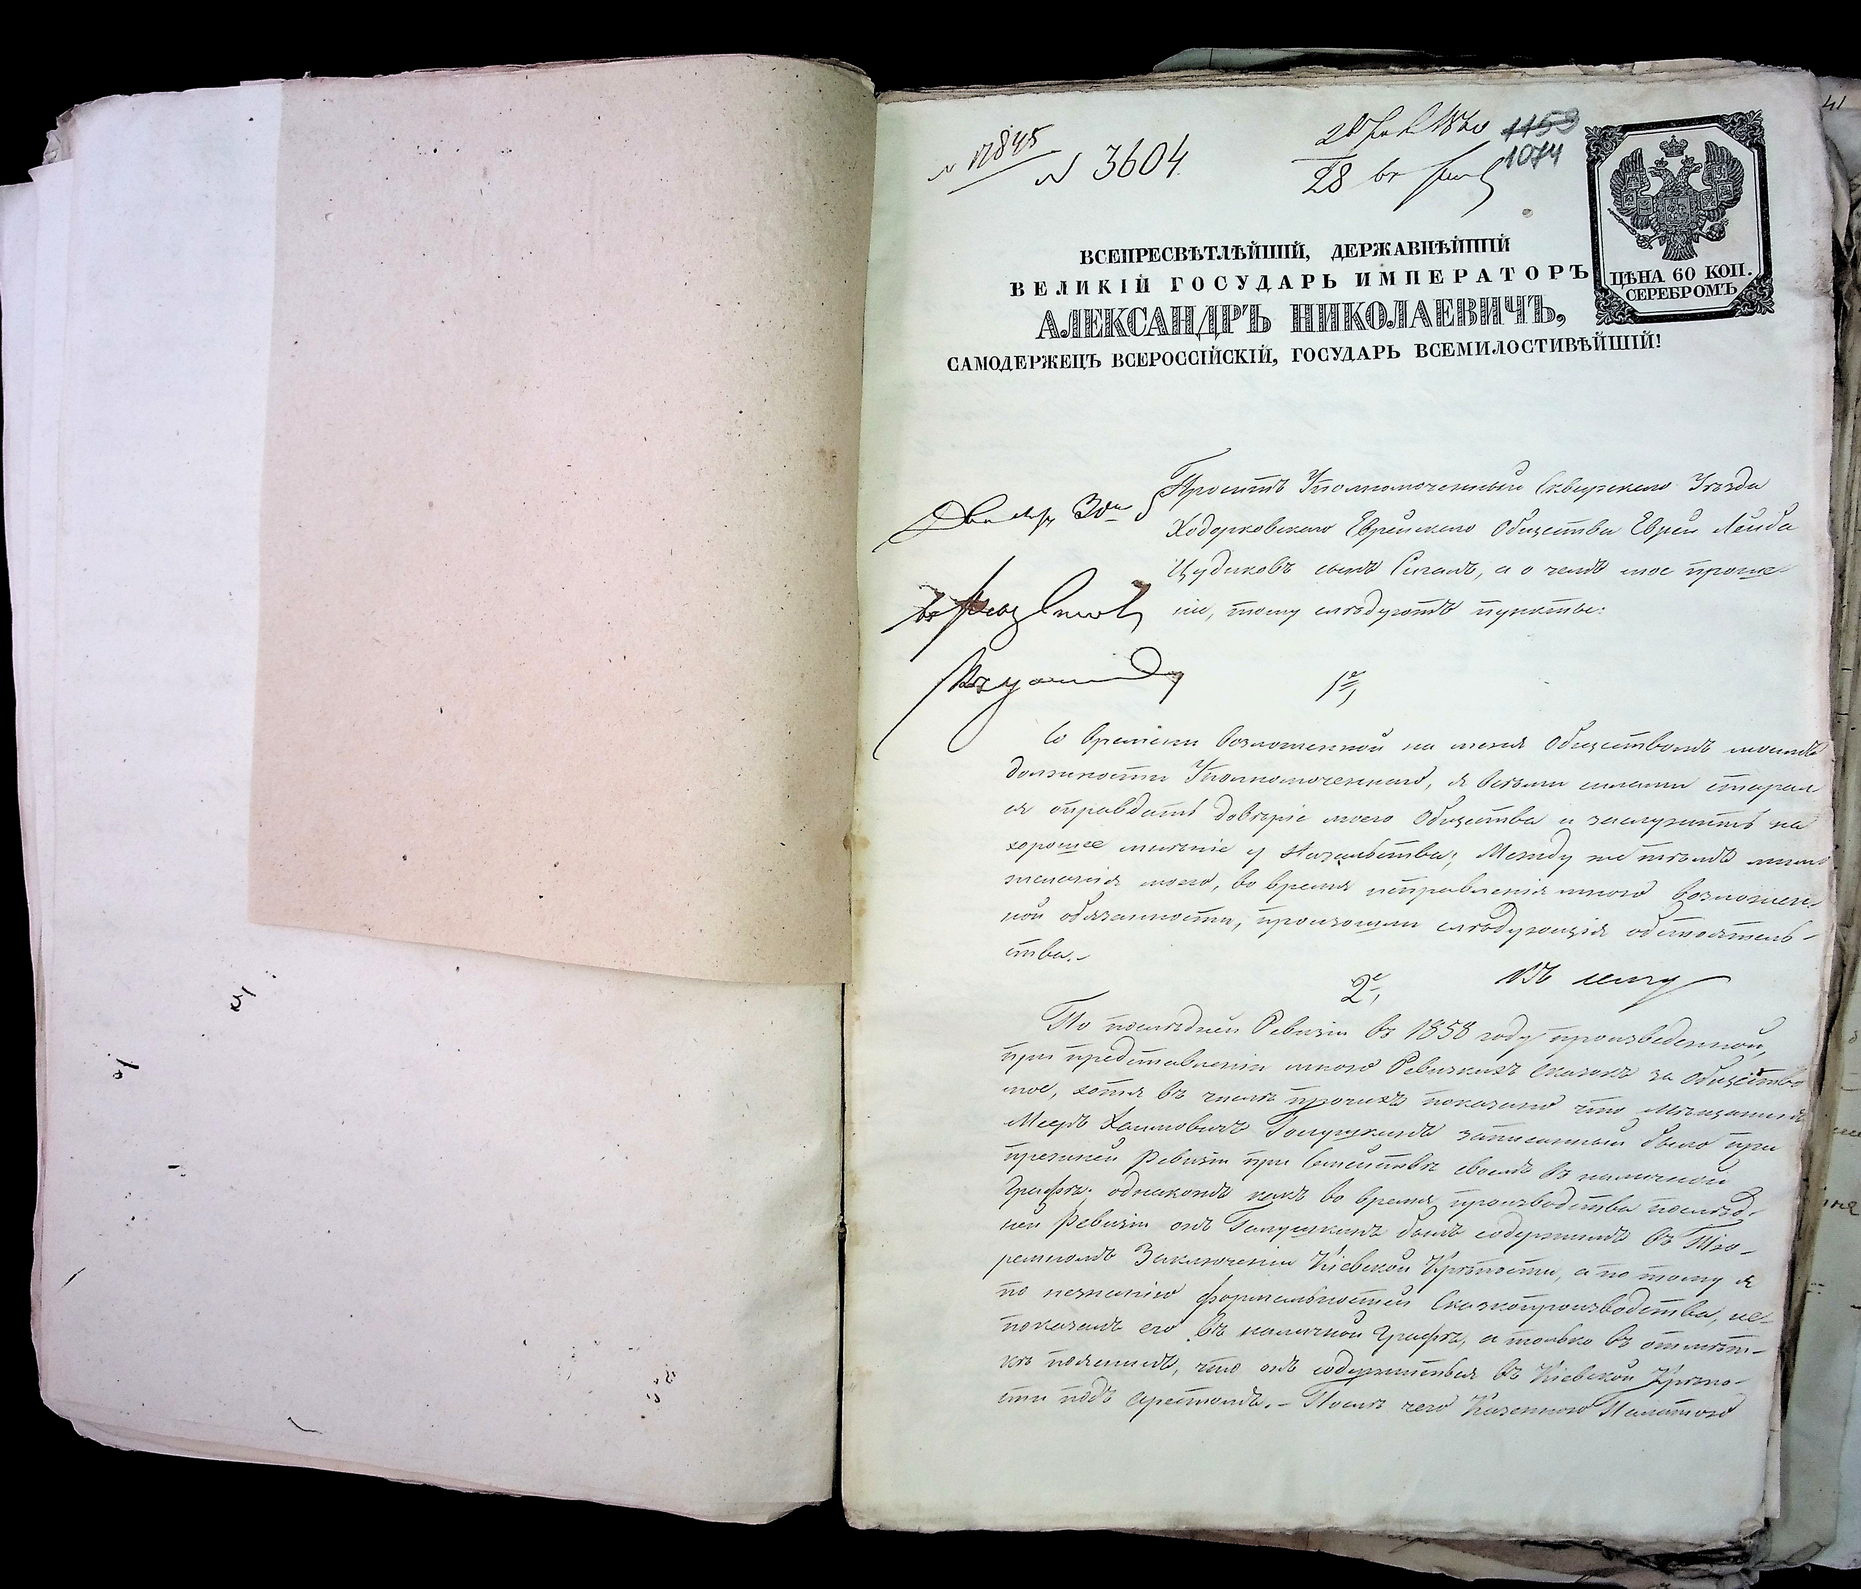 № 17845
№ 3604
1153
1074
28
ЦѢНА 60 КОП.
СЕРЕБРОМЪ
ВСЕПРЕСВѢТЛѢЙШІЙ, ДЕРЖАВНѢЙШІЙ
ВЕЛИКІЙ ГОСУДАРЬ ИМПЕРАТОРЪ
АЛЕКСАНДРЪ НИКОЛАЕВИЧЪ,
САМОДЕРЖЕЦЪ ВСЕРОССІЙСКІЙ, ГОСУДАРЬ ВСЕМИЛОСТИВѢЙШІЙ!
Проситъ Уполномоченный Сквирскаго Уѣзда
Ходорковскаго Еврейскаго Общества Еврей Лейба
Цудиковъ сынъ Сигалъ, а о чемъ мое проше-
ніе, тому слѣдуютъ пункты:
1е,
Со времени возложенной на меня Обществомъ моимъ
должности Уполномоченнаго, я всѣми силами старал
ся оправдать довѣріе моего Общества и заслужить на
хорошее мнѣніе у Начальства; Между же тѣмъ мимо
желанія моего, во время исправленія мною возложен-
ной обязанности, произошли слѣдующія обстоятель-
ства.-
2е,
По послѣдней Ревизіи въ 1858 году произведенной,
при представленіи мною Ревизкихъ сказокъ за Общество
мое, хотя въ числѣ прочихъ показано что Мѣщанинъ
Мееръ Хаимовичъ Галушкинъ записанный было при
прежней Ревизіи при Семействѣ своемъ въ наличной
Графѣ; однакожъ какъ во время производства послѣд-
ней Ревизіи онъ Галушкинъ былъ содержимъ въ Тю-
ремномъ Заключеніи Кіевской Крѣпости, а по тому я
по незнанію формальностей Сказкопроизводства, не-
показалъ его въ наличной Графѣ, а только въ отмѣт-
кѣ пояснилъ, что онъ содержиться въ Кіевской Крѣпо-
сти подъ арестомъ.- Послѣ чего Казенною Палатою